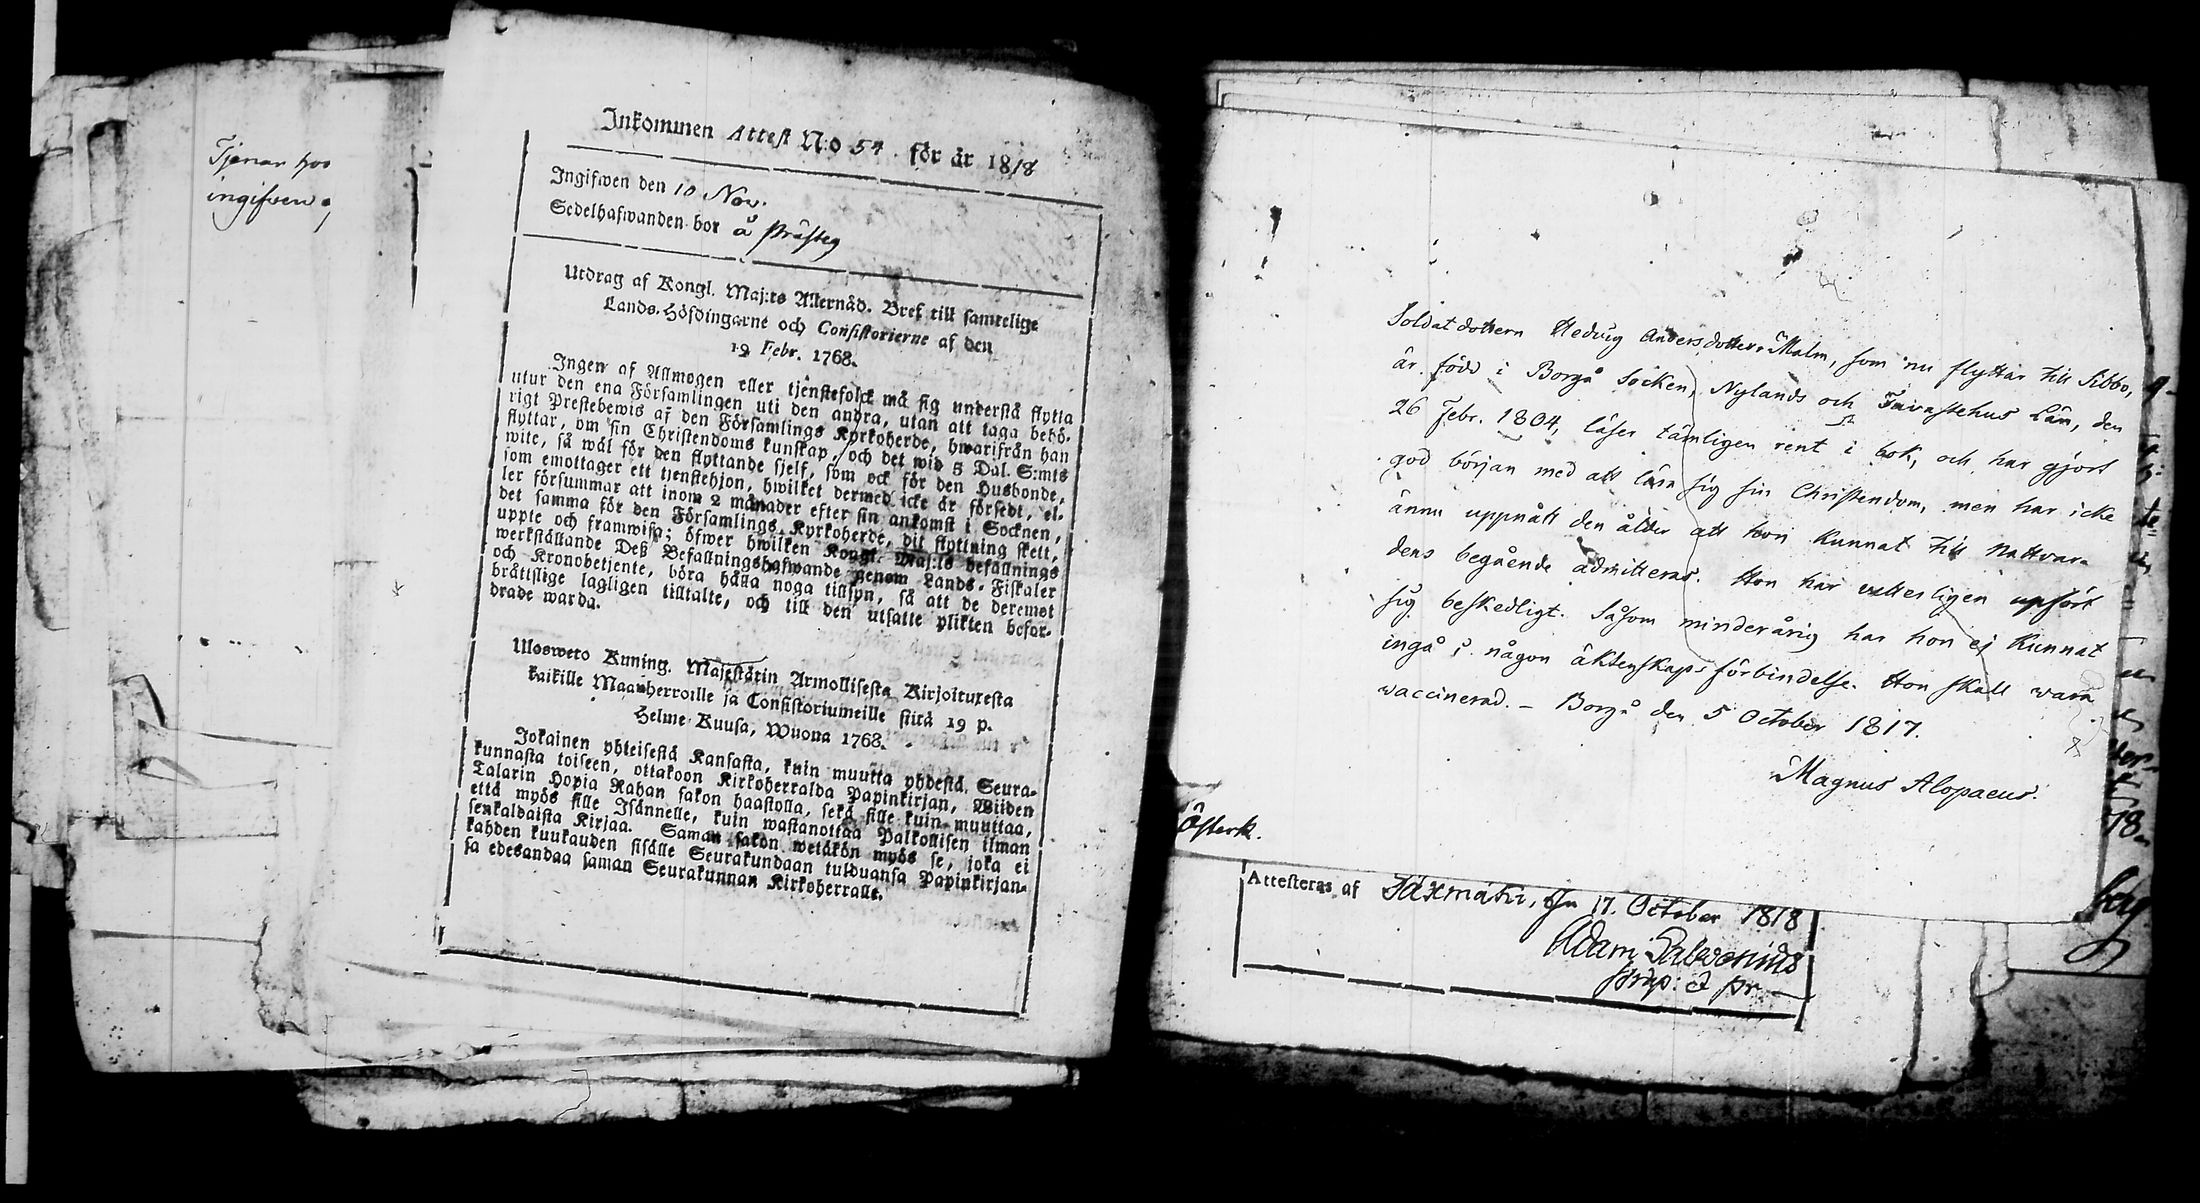 Tjenar hos
ingifven
Inkommen Attest N:o 54 för år 1818
Ingifwen den 10 Nov.
Sedelhafwanden bor å Prästeg
Utdrag af Kongl. Maj:ts Allernåd. Bref till samtelige
Lands-Höfdingarne och Consistorierne af den
19 Febr. 1768.
Ingen af Allmogen eller tjenstefolck må sig understå flytta
utur den ena Församlingen uti den andra, utan att taga behö-
rigt Prestebewis af den Församlings Kyrkoherde, hwarifrån han
flyttar, om sin Christendoms kunskap, och det wid 5 Dal. S:mts
wite, så wäl för den flyttande sjelf, som ock för den Husbonde,
som emottager ett tjenstehjon, hwilket dermed icke är försedt, el-
ler försummar att inom 2 månader efter sin ankomst i Socknen,
det samma för den Församlings Kyrkoherde, dit flyttning skett,
uppte och framwisa; öfwer hwilken Kongl. Maj:ts befallnings
werkställande Deß Befallningshafwande genom Lands-Fiskaler
och Kronobetjente, böra hålla noga tillsyn, så att de deremot
bråttslige lagligen tilltalte, och till den utsatte plikten befor-
drade warda.
Ulosweto Kuning. Majestätin Armollisesta Kirjoituxesta
kaikille Maanherroille ja Consistoriumeille siitä 19 p.
Helme-Kuusa, Wuona 1768.
Jokainen yhteisestä Kansasta, kuin muutta yhdestä Seura-
kunnasta toiseen, ottakoon Kirkoherralda Papinkirjan, Wiiden
Talarin Hopia Rahan sakon haastolla, sekä sille kuin muuttaa,
että myös sille Isännelle, kuin wastanottaa Palkollisen ilman
senkaldaista Kirjaa. Saman sakon wetäkön myös se, joka ei
kahden kuukauden sisälle Seurakundaan tulduansa Papinkirjan-
sa edesandaa saman Seurakunnan Kirkoherralle.
Soldatdottern Hedvig Andersdotter Malm, som nu flyttar till Sibbo,
är född i Borgå Socken, Nylands och Tavastehus Län, den
26 Febr. 1804, läser tämligen rent i bok, och har gjort
god början med att lära sig sin Christendom, men har icke
ännu uppnått den ålder att hon kunnat till Nattvar-
dens begående admitteras. Hon har vitterligen upfört
sig beskedligt. Såsom minderårig har hon ej kunnat
ingå i någon äktenskaps förbindelse. Hon skall wara
vaccinerad. – Borgå den 5 October 1817.
Magnus Alopaeus.
Österk.
Attesteras af Taxmakr, den 17. October 1818
Adam